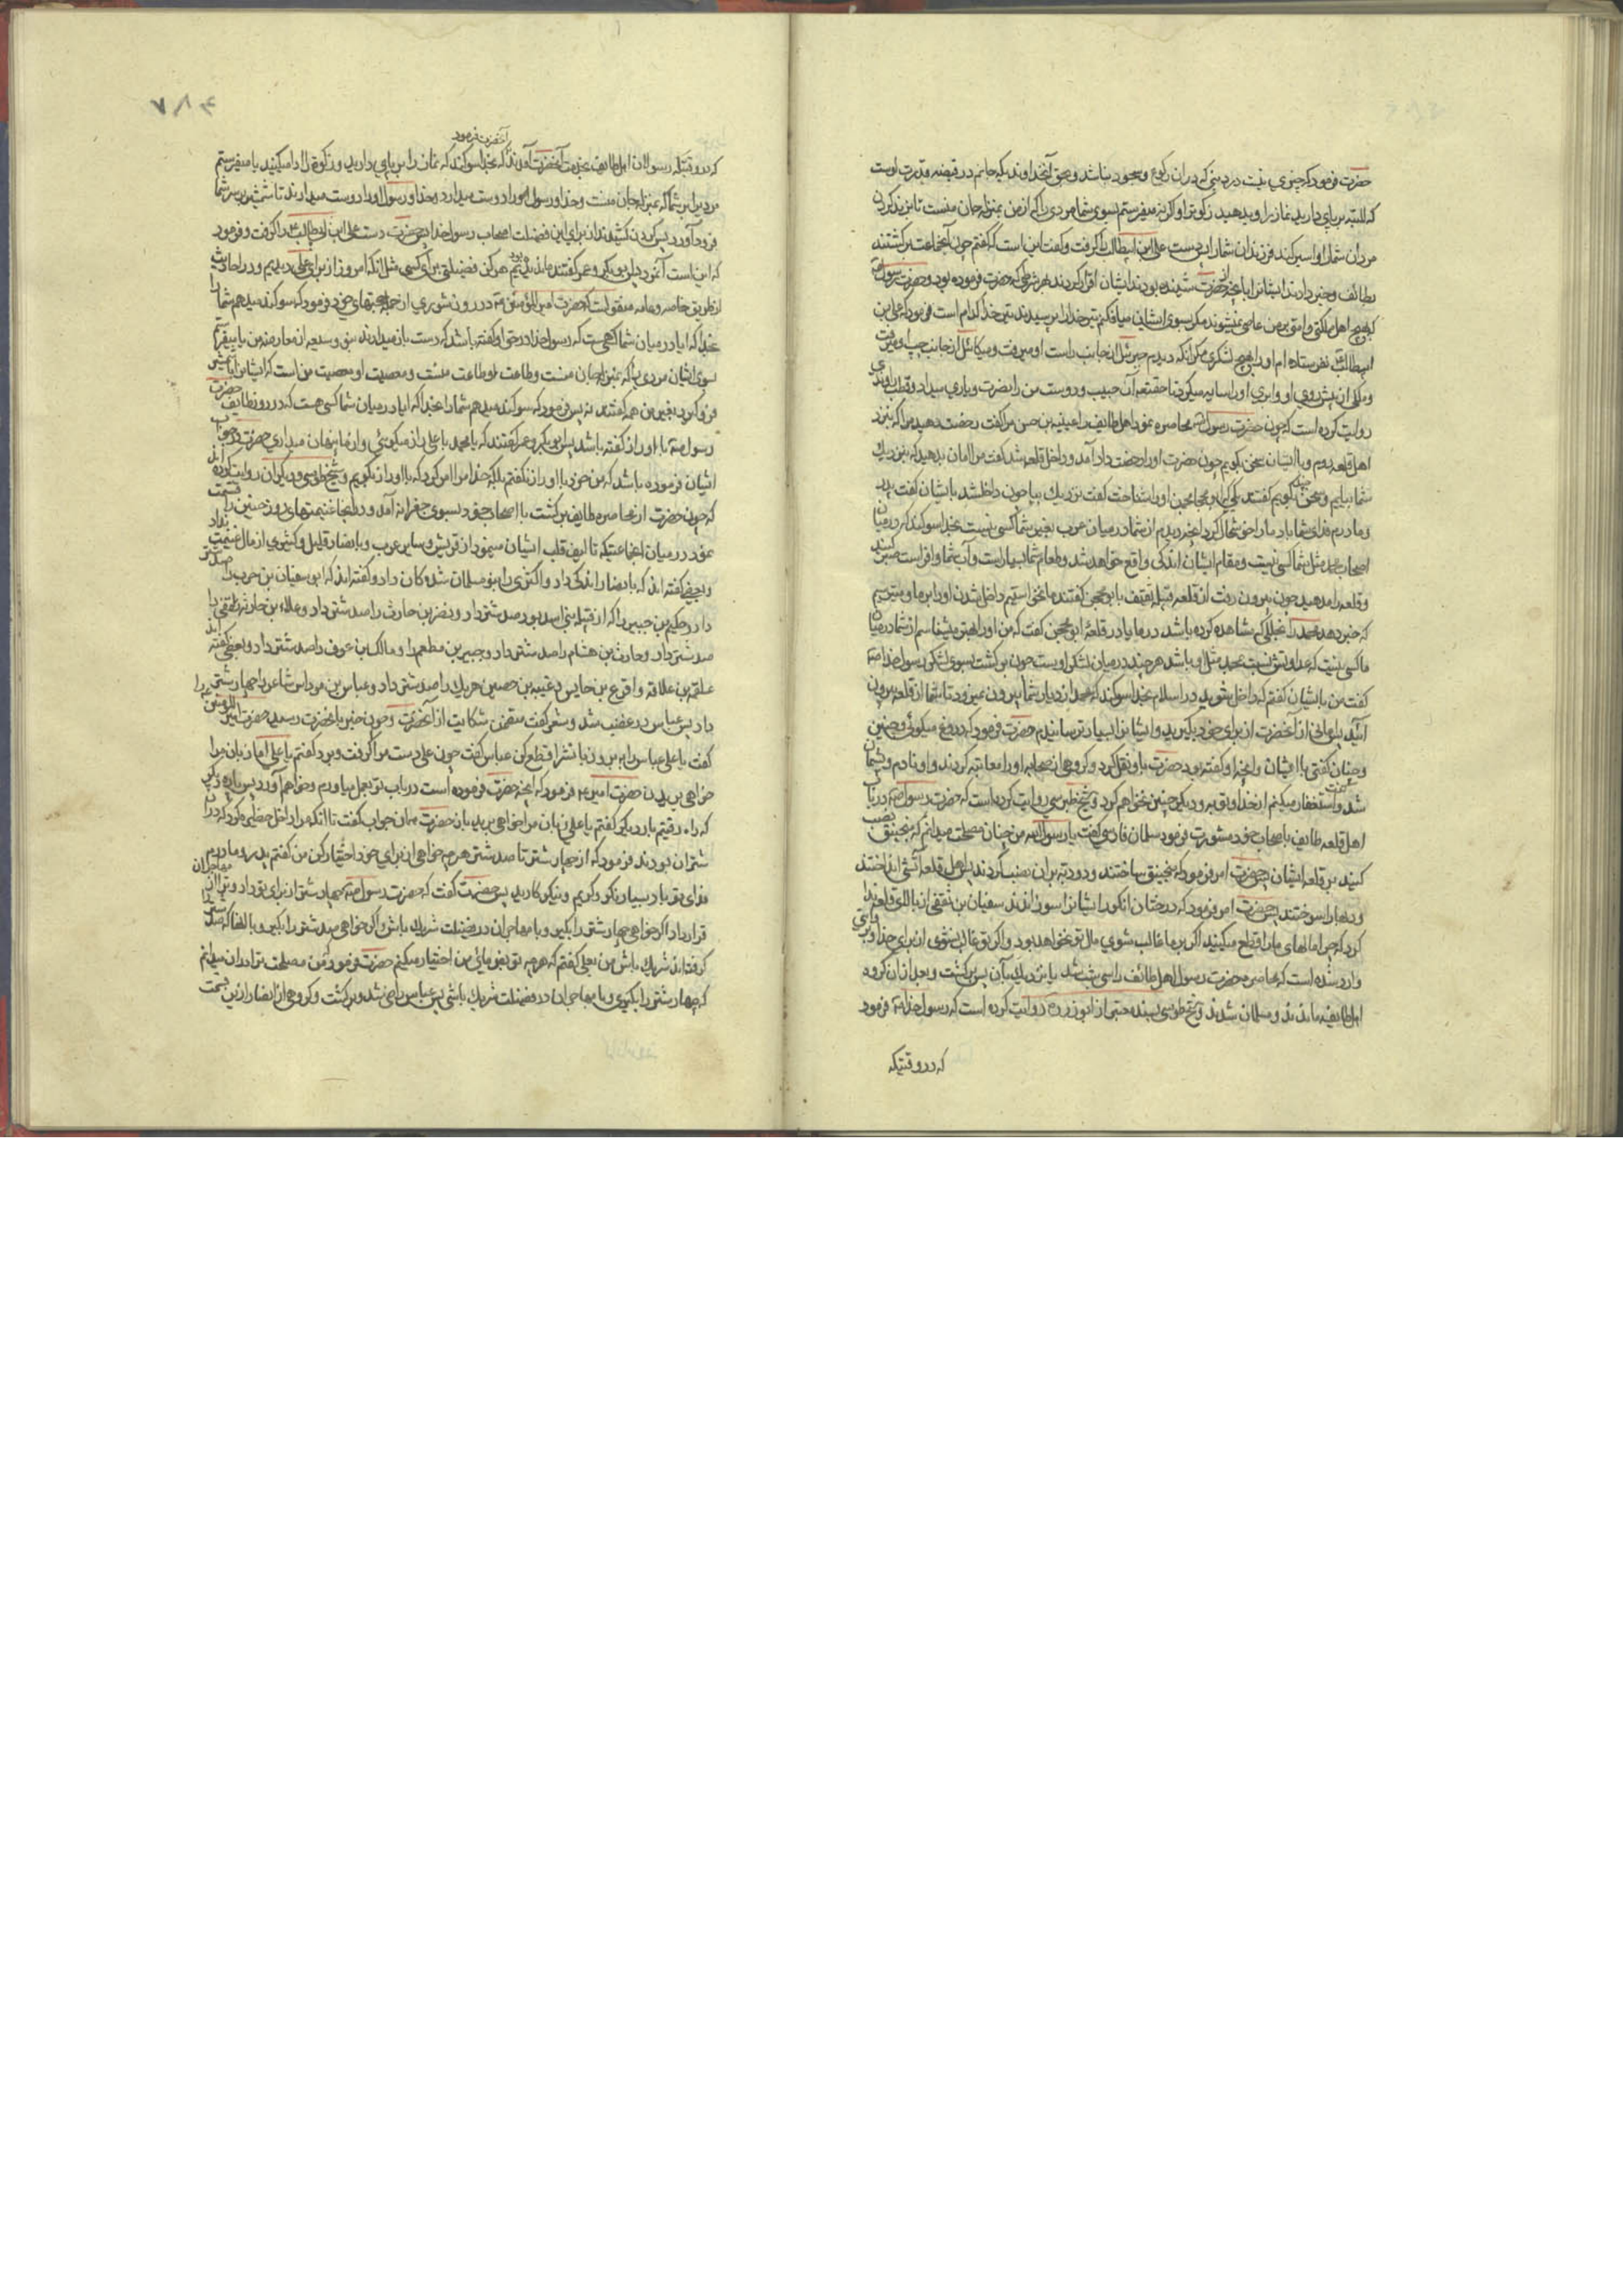 حضرت فرمود که چیزی نیست در دینی که در آن رکوع و سجود نباشد و بحق آنخداوندیکه جانم در قبضه قدرت اوست
که البته برپای دارید نماز را و بدهید زکوة را و اگر نه میفرستم بسوی شما مردی را که از من بمنزله جان منست تا بزند گردن
مردان شما را و اسیر کند فرزندان شما را پس دست علی بن ابیطالب را گرفت و گفت این است که گفتم چون آنجماعت برگشتند
بطائف و خبر دادند ایشانرا بآنچه از حضرت شنیده بودند ایشان اقرار کردند هر شرطی که حضرت فرموده بود و حضرت رسول ص
که هیچ اهل مملکتی و امتی بر من عاصی نمیشوند مگر بسوی ایشان میافکنم تیر خدا را پرسیدند تیر خدا کدام است فرمود که علی بن
ابیطالب نفرستاده ام او را بهیچ لشکری مگر آنکه دیدم جبرئیل از جانب راست او میرفت و میکائیل از جانب چپ او میرفت
و ملکی از پیش روی او و ابری او را سایه میکرد تا حقتعالی آن حبیب و دوست من را نصرت و یاری میداد و قطب راوندی
روایت کرده است که چون حضرت رسول ص محاصره نمود اهل طایف را عیینه بن حصن گفت رخصت دهید مرا که بنزد
اهل قلعه روم و با ایشان سخن بگویم چون حضرت او را رخصت داد آمد و داخل قلعه شد گفت مرا امان بدهید که بنزدیک
شما بیایم و سخن بگویم گفتند بلی ابو محجن او را شناخت گفت نزدیک بیا چون داخل شد با ایشان گفت پدر
و مادرم فدای شما باد ما را خوشحال کرد آنچه دیدم از شما در میان عرب بغیر شما کسی نیست بخدا سوگند که در میان
اصحاب محمد مثل شما کسی نیست و مقام ایشان اندکی واقع خواهد شد و طعام شما بسیار است و آب شما وافر است صبر کنید
و قلعه را مدهید چون بیرون رفت از قلعه قبیله ثقیف بابو محجن گفتند ما نمیخواستیم داخل شدن او را بر ما و میترسیم
که خبر دهد محمد را بخللی که مشاهده کرده باشد در ما یا در قلعه ما ابو محجن گفت که من او را بهتر میشناسم از شما در میان
ما کسی نیست که عداوتش نسبت بمحمد مثل او باشد هر چند در میان لشکر اوست چون برگشت بسوی لشکر رسول خدا ص
گفت من با ایشان گفتم که داخل شوید در اسلام بخدا سوگند که محمد از دیار شما بیرون نمیرود تا شما از قلعه بیرون
آئید پس امانی از آنحضرت از برای خود بگیرید و ایشانرا بسیار ترسانیدم حضرت فرمود که دروغ میگوئی و چنین
و چنان گفتی با ایشان و آنچه او گفته بود حضرت باو نقل کرد و گروهی از صحابه او را معاتبه کردند و او نادم و پشیمان
شد و گفت استغفار میکنم از خدا و توبه و دیگر چنین نخواهم کرد و شیخ طبرسی روایت کرده است که حضرت رسول ص در باب
اهل قلعه طایف باصحاب خود مشورت فرمود سلمان فارسی گفت یا رسول الله من چنان مصلحت میدانم که منجنیق نصب
کنید بر قلعه ایشان پس حضرت امر فرمود که منجنیق ساختند و دو دبابه بر آن نصب کردند پس اهل قلعه آتشی انداختند
و دبابه را سوختند پس حضرت امر فرمود که درختان انگور ایشانرا بسوزانند سفیان بن ثقفی از بالای قلعه ندا
کرد که چرا مالهای ما را قطع میکنید اگر بر ما غالب شوی مال تو خواهد بود و اگر تو غالب نشوی از برای خدا
وارد شده است که محاصره حضرت رسول اهل طائف را سی شب شد یا نزدیک بآن پس برگشت و بعد از آن گروه
اهل طایف ماندند و مسلمان شدند و شیخ طوسی بسند معتبر از ابوذر ره روایت کرده است که رسول خدا ص فرمود
که در وقتیکه
۷۸۴
آنحضرت فرمود
که در وقتیکه رسولان اهل طایف بخدمت آنحضرت آمدند که بخدا سوگند که نماز را برپای دارید و زکوة را ادا میکنید یا میفرستم
مردی را بر شما که بمنزله جان منست و خدا و رسول او را دوست میدارد و خدا و رسول را دوست میدارند تا شمشیر بر سر شما
فرود آورد پس گردن کشیدند از برای این فضیلت اصحاب رسول خدا پس حضرت دست علی ابن ابیطالب را گرفت و فرمود
که این است آنمرد پس ابوبکر و عمر گفتند ما ندیدیم هرگز فضیلتی برای کسی مثل آنکه امروز از برای علی دیدیم و در احادیث
از طریق خاصه و عامه منقول است که حضرت امیرالمؤمنین در روز شوری از جمله حجتهای خود فرمود که سوگند میدهم شما را
بخدا که آیا در میان شما کسی هست که رسول خدا در حق او گفته باشد که دست باز میدارند بنو ولیعه از معارضه من یا میفرستم
بسوی ایشان مردی را که بمنزله جان منست و طاعت او طاعت منست و معصیت او معصیت من است که ایشانرا بشمشیر
فرو گیرد بغیر من همه گفتند نه پس فرمود که سوگند میدهم شما را بخدا که آیا در میان شما کسی هست که در روز طایف حضرت
رسول ص با او راز گفته باشد پس ابوبکر و عمر گفتند که یا محمد با علی راز میگوئی و از ما پنهان میداری حضرت در جواب
ایشان فرموده باشد که من خود با او راز نگفتم بلکه خدا مرا امر کرد که با او راز بگویم و شیخ طوسی و دیگران روایت کرده اند
که چون حضرت از محاصره طایف برگشت با اصحاب خود بسوی جعرانه آمد و در آنجا غنیمتهای روز حنین را قسمت
نمود در میان جماعتیکه تالیف قلب ایشان مینمود از قریش و سایر عرب و بانصار قلیل و کثیری از مال غنیمت نداد
و بعضی گفته اند که بانصار اندکی داد و اکثری را بنو مسلمان شده گان داد و گفته اند که ابو سفیان بن حرب را صد شتر
داد و حکیم بن حزام را که از قبیله بنی اسد بود صد شتر داد و نضر بن حارث را صد شتر داد و علاء بن حارثه ثقفی را
صد شتر داد و حارث بن هشام را صد شتر داد و جبیر بن مطعم را و مالک بن عوف را صد شتر داد و بعضی گفته اند
علقمه بن علاقه و اقرع بن حابس و عیینه بن حصین هر یک را صد شتر داد و عباس بن مرداس شاعر را چهار شتر
داد پس عباس در غضب شد و شعری گفت متضمن شکایت از آنحضرت و چون خبر بآنحضرت رسید حضرت امیر المؤمنین را
گفت یا علی عباس را ببر بیرون زبانش را قطع کن عباس گفت چون علی دست مرا گرفت و برد گفتم یا علی آیا زبان مرا
خواهی برید حضرت امیر ع فرمود که آنچه حضرت فرموده است در باب تو بعمل میاورم و خواهم آورد پس پاره دیگر
که راه رفتیم بار دیگر گفتم یا علی زبان مرا خواهی برید باز حضرت همان جواب گفت تا آنکه مرا داخل حظیره کرد که در آن
شتران بودند فرمود که از چهار شتر تا صد شتر هر چه خواهی از برای خود اختیار کن من گفتم پدر و مادرم
فدای تو باد بسیار نیکو و کریم و نیکو کارید پس حضرت گفت که حضرت رسول ص چهار شتر از برای تو داد و ترا از مهاجران
قرار داد اگر خواهی چهار شتر را بگیر و با مهاجران در فضیلت شریک باش و اگر خواهی صد شتر را بگیر و با آنها که صد شتر
گرفته اند شریک باش من بعلی گفتم که هر چه تو بفرمائی من اختیار میکنم حضرت فرمود که من مصلحت ترا در آن میدانم
که چهار شتر را بگیری و با مهاجران در فضیلت شریک باشی پس عباس راضی شد و برگشت و گروهی از انصار از این قسمت